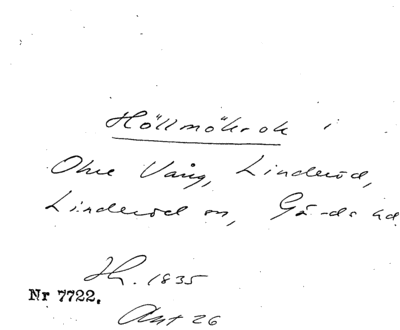 Höllmökrok i
Ohre Vång, Linderöd,
Linderöd sn, Gä-ds hd
1835
Nr 7722.
Ant 26